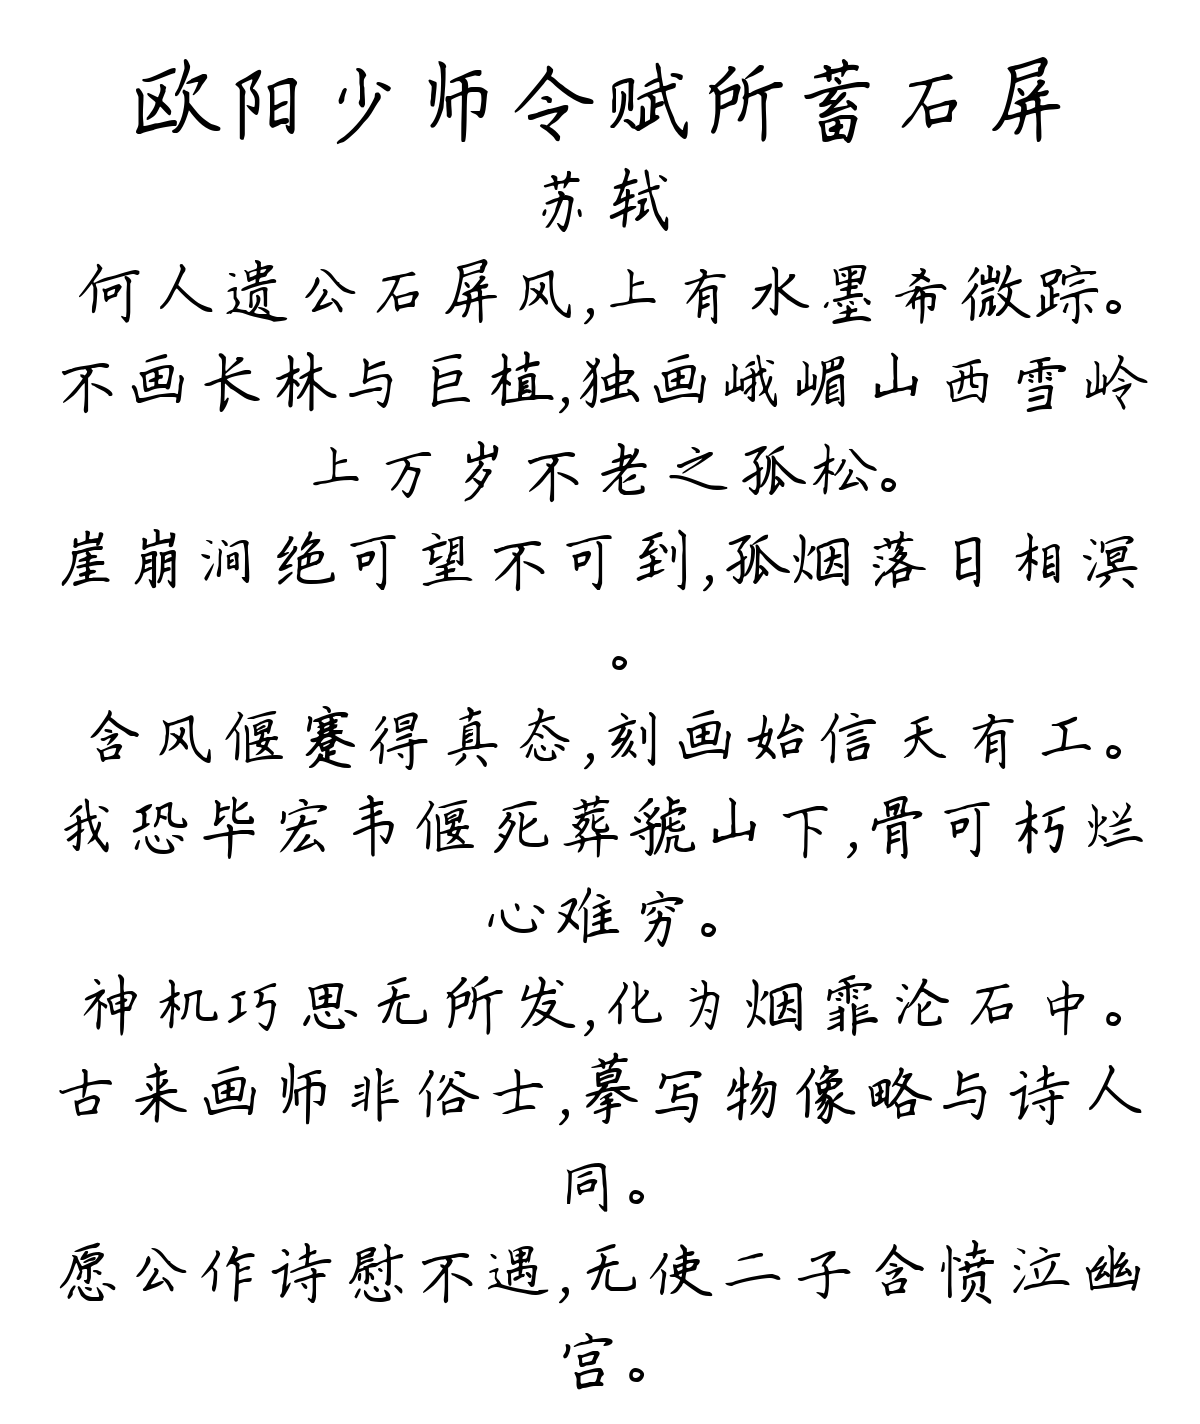 欧阳少师令赋所蓄石屏
苏轼
何人遗公石屏风,上有水墨希微踪。
不画长林与巨植,独画峨嵋山西雪岭
上万岁不老之孤松。
崖崩涧绝可望不可到,孤烟落日相溟
。
含风偃蹇得真态,刻画始信天有工。
我恐毕宏韦偃死葬虢山下,骨可朽烂
心难穷。
神机巧思无所发,化为烟霏沦石中。
古来画师非俗士,摹写物像略与诗人
同。
愿公作诗慰不遇,无使二子含愤泣幽
宫。